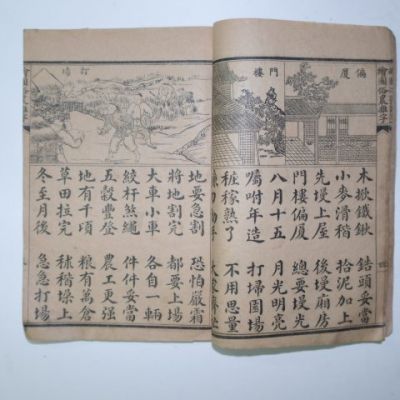 繪圖俗農雜字
偏厦
門樓
木掀鐵鍬 頭妥當
小麥滑稭 拾泥加上
先墁上屋 後墁廂房
門樓偏厦 總要墁光
八月十五 月光明亮
囑咐年造 打掃園場
稼熟了 不用思量
打場
地要急割 恐怕嚴霜
將地割完 都要上場
大車小車 各自一輛
絞杆煞繩 件件妥當
五穀豐登 農工更强
地有千頃 粮有萬倉
草田拉完 秫稭垛上
冬至月後 急急打場